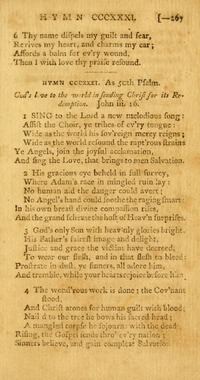 HYMN CCCXXXI. [—267
6 Thy name dispels my guilt and fear,
Revives my heart, and charms my ear;
Affords a balm for ev'ry wound,
Then I with love thy praise resound.
HYMN CCCXXXI. As 50th Psalm.
God's Love to the world in sending Christ for its Re-
demption. John iii. 16.
1 SING to the Lord a new melodious song:
Assist the Choir, ye tribes of ev'ry tongue:
Wide as the world his sov'reign mercy reigns;
Wide as the world resound the rapt'rous strains
Ye Angels, join the joyful acclamation,
And sing the Love, that brings to man Salvation.
2 His gracious eye beheld in full survey,
Where Adam's race in mingled ruin lay:
No human aid the danger could avert;
No Angel's hand could soothe the raging smart:
In his own breast divine compassion rises,
And the grand scheme the host of Heav'n surprises.
3 God's only Son with heav'nly glories bright,
His Father's fairest image and delight,
Justice and grace the victim have decreed,
To wear our flesh, and in that flesh to bleed:
Prostrate in dust, ye sinners, all adore him,
And tremble, while your hearts rejoice before him.
4 The wond'rous work is done; the Cov'nant
stood,
And Christ atones for human guilt with blood;
Nail'd to the tree he bows his sacred head;
A mangled corpse he sojourns with the dead
Rising, the Gospel sends thro' ev'ry nation;
Sinners believe, and gain complete Salvation